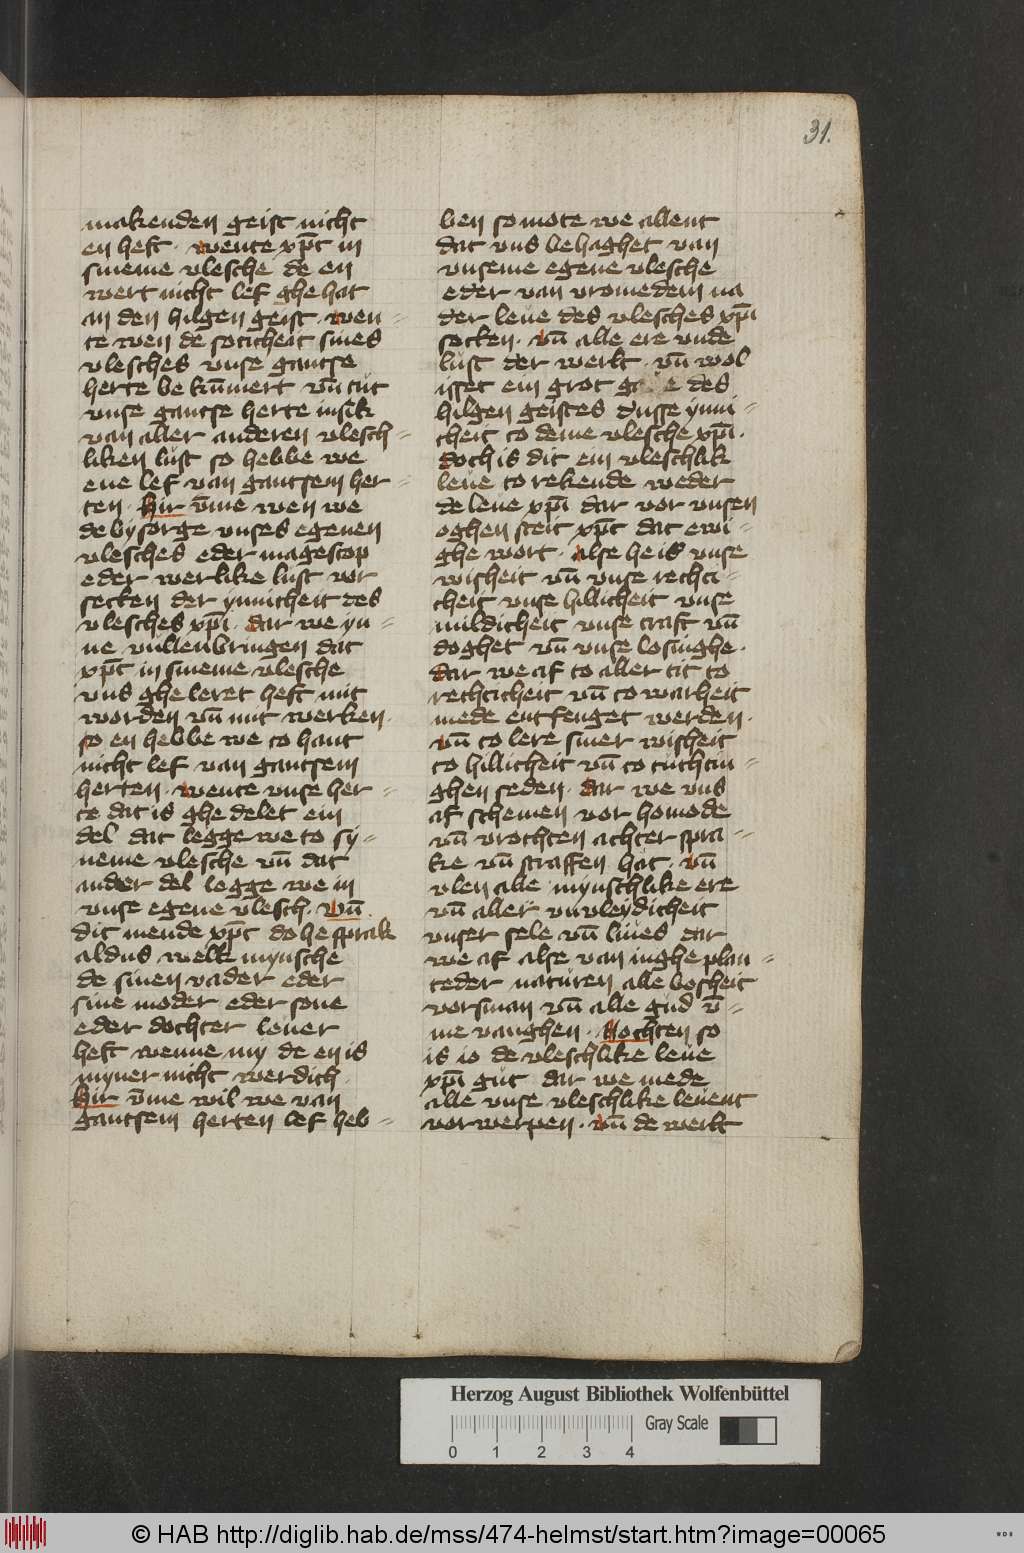 31.
makenden geist nicht
en heft · wente xp̄c in
sineme vlesche de en
wert nicht lef ghe hat
an den hilgen geist · wen=
te wen de soticheit sines
vlesches vnse gantse
herte be kūmert vn̄ tůt
vnse gantse herte in sik
van aller anderen vlesch=
liken lust so hebbe we
ene lef van gantsem her=
ten · Hir v̄me wen we
de bysorge vnses egenen
vlesches eder magescop
eder werlike lust vor
secken der ynnicheit des
vlesches xp̄i · dar we yn=
ne vullenbringen dat
xp̄c in sineme vlesche
vns ghe leret heft mit
worden vn̄ mit werken ·
so en hebbe we to hant
nicht lef van gantsem
herten · wente vnse her=
te dat is ghe delet ein
del dat legge we to sy=
neme vlesche vn̄ dat
ander del legge we in
vnse egene vlesch · vn̄
dit mende xp̄c do he sprak
aldus welk mynsche
de sinen vader eder
sine moder eder sone
eder dochter leuer
heft wenne my de en is
myner nicht werdich ·
Hir v̄me wil we van
gantsem herten lef heb=
ben so mote we allent
dat vns behaghet van
vnseme egene vlesche
eder van vromedem na
der leue des vlesches xp̄i
socken · vn̄ alle ere vnde
lust der werlt · vn̄ wol
isset ein grot des
hilgen geistes dusse ynni=
cheit to deme vlesche xp̄i ·
doch is dit ein vleschlik
leue to rekende weder
de leue xp̄i dar vor vnsen
oghen steit xp̄c dat ewi=
ghe wort · alse he is vnse
wisheit vn̄ vnse rechti=
cheit vnse hillicheit vnse
mildicheit vnse craft vn̄
doghet vn̄ vnse losinghe ·
dar we af to aller tit to
rechticheit vn̄ to warheit
mede entfenget werden ·
vn̄ to lere siner wisheit
to hillicheit vn̄ to tuchtin=
ghen seden · dar we vns
af schemen vor homode
vn̄ vrochten achter spra=
ke vn̄ straffen hat · vn̄
vlen alle mynschlike ere
vn̄ aller vnvleydicheit
vnser sele vn̄ liues dar
we af alse van inghe plan=
teder naturen alle bosheit
vorsman vn̄ alle gud v̄=
me vanghen · Nochten so
is io de vleschlike leue
xp̄i gůt dar we mede
alle vnse vleschlike leuent
vorwerpen · vn̄ de werlt
Herzog August Bibliothek Wolfenbüttel
Gray Scale
0 1 2 3 4
© HAB http://diglib.hab.de/mss/474-helmst/start.htm?image=00065
WDB